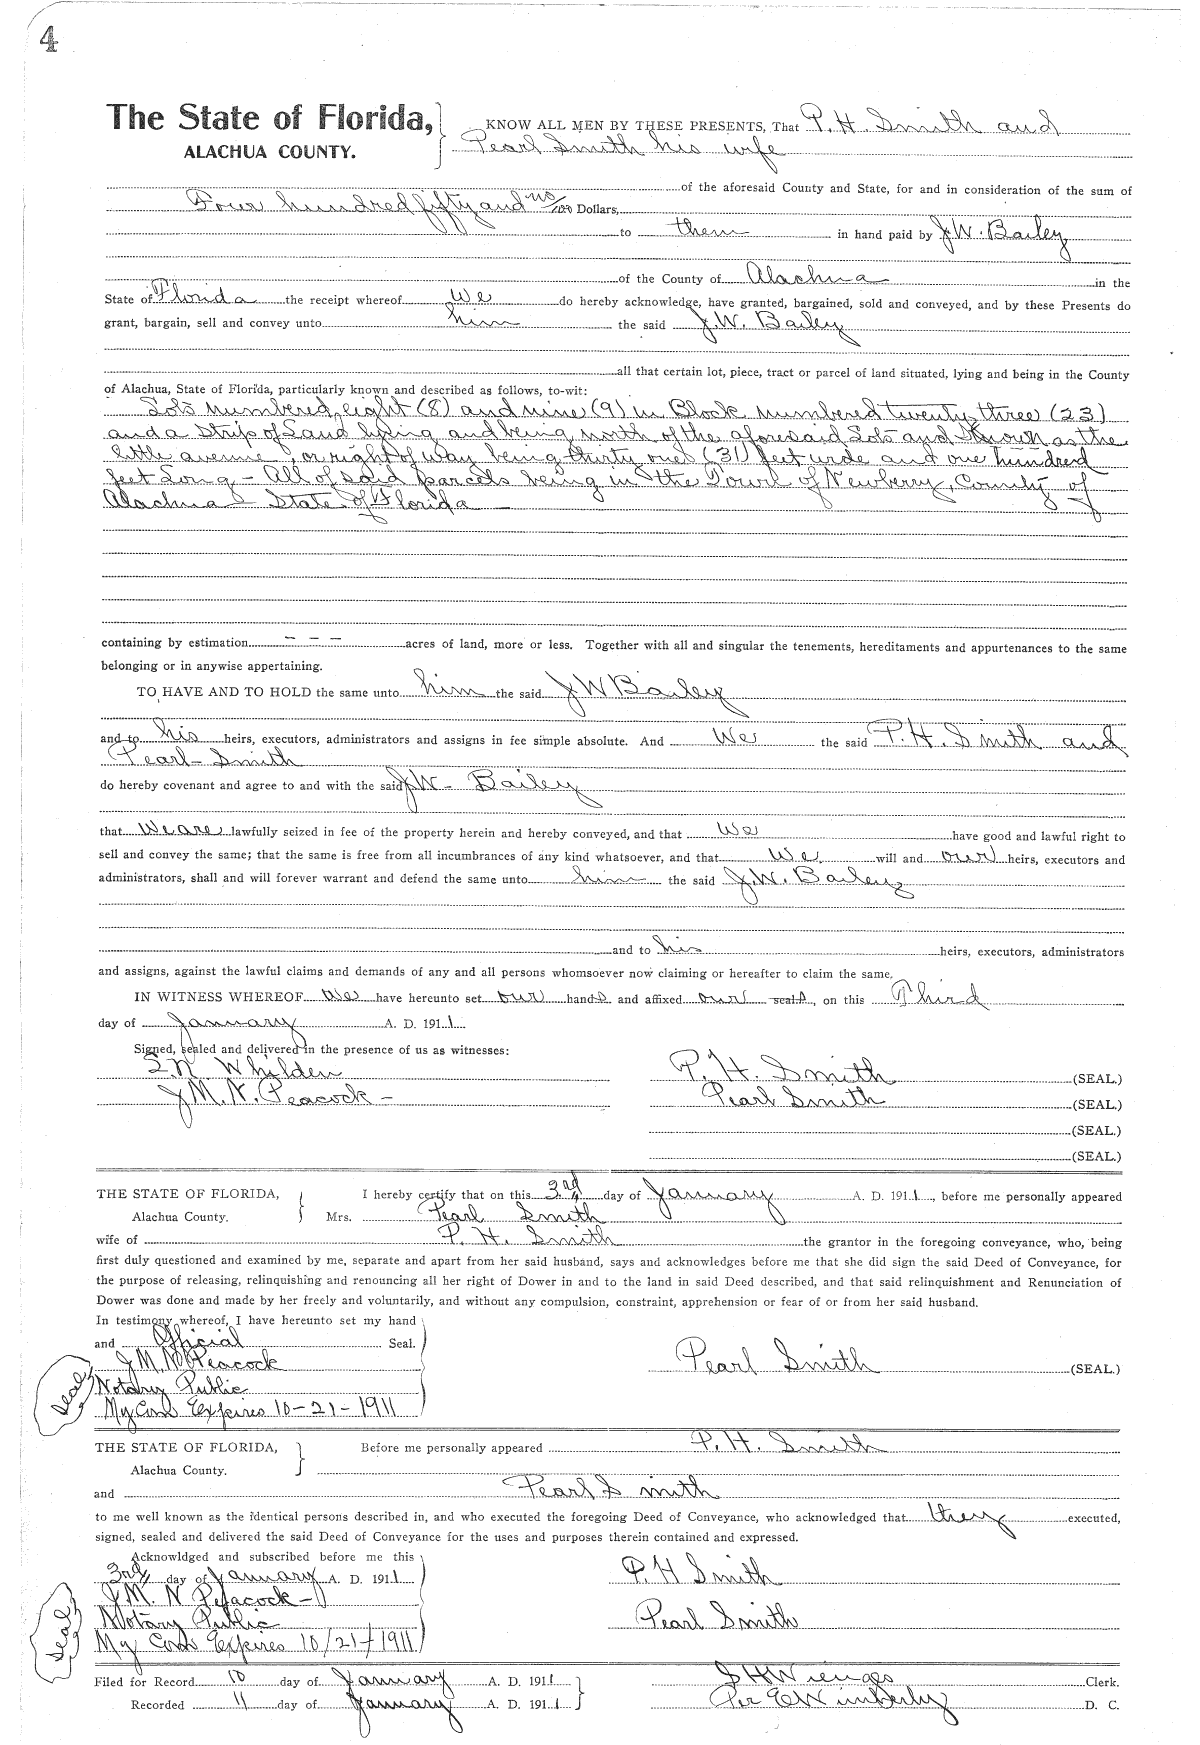 4
The State of Florida, KNOW ALL MEN BY THESE PRESENTS, That P. H. Smith and
ALACHUA COUNTY. Pearl Smith his wife
of the aforesaid County and State, for and in consideration of the sum of
Four hundred fifty and no/100 Dollars,
to them in hand paid by J.W. Bailey
of the County of Alachua in the
State of Florida the receipt whereof We do hereby acknowledge, have granted, bargained, sold and conveyed, and by these Presents do
grant, bargain, sell and convey unto him the said J.W. Bailey
all that certain lot, piece, tract or parcel of land situated, lying and being in the County
of Alachua, State of Florida, particularly known and described as follows, to-wit:
Lots numbered eight (8) and nine (9) in Block numbered twenty three (23)
and a strip of Land lying and being north of the aforesaid Lots and Known as the
little avenue, or right of way being thirty one (31) feet wide and one hundred
feet Long - All of said parcels being in the Town of Newberry, County of
Alachua State of Florida -
containing by estimation - - - acres of land, more or less. Together with all and singular the tenements, hereditaments and appurtenances to the same
belonging or in anywise appertaining.
TO HAVE AND TO HOLD the same unto him the said J W Bailey
and to his heirs, executors, administrators and assigns in fee simple absolute. And We the said P. H. Smith and
Pearl - Smith
do hereby covenant and agree to and with the said J.W - Bailey
that We are lawfully seized in fee of the property herein and hereby conveyed, and that We have good and lawful right to
sell and convey the same; that the same is free from all incumbrances of any kind whatsoever, and that We will and our heirs, executors and
administrators, shall and will forever warrant and defend the same unto him the said J.W. Bailey
and to his heirs, executors, administrators
and assigns, against the lawful claims and demands of any and all persons whomsoever now claiming or hereafter to claim the same.
IN WITNESS WHEREOF We have hereunto set our hands and affixed our seals, on this Third
day of January A. D. 1911
Signed, sealed and delivered in the presence of us as witnesses:
Whilden P. H. Smith (SEAL.)
J M. N. Peacock - Pearl Smith (SEAL.)
(SEAL.)
(SEAL.)
THE STATE OF FLORIDA, I hereby certify that on this 3rd day of January A. D. 1911, before me personally appeared
Alachua County. Mrs. Pearl Smith
wife of P. H. Smith the grantor in the foregoing conveyance, who, being
first duly questioned and examined by me, separate and apart from her said husband, says and acknowledges before me that she did sign the said Deed of Conveyance, for
the purpose of releasing, relinquishing and renouncing all her right of Dower in and to the land in said Deed described, and that said relinquishment and Renunciation of
Dower was done and made by her freely and voluntarily, and without any compulsion, constraint, apprehension or fear of or from her said husband.
In testimony whereof, I have hereunto set my hand
and Official Seal.
J M. N Peacock Pearl Smith (SEAL.)
Seal Notary Public
My Com Expires 10-21-1911
THE STATE OF FLORIDA, Before me personally appeared P. H. Smith
Alachua County.
and Pearl Smith
to me well known as the identical persons described in, and who executed the foregoing Deed of Conveyance, who acknowledged that they executed,
signed, sealed and delivered the said Deed of Conveyance for the uses and purposes therein contained and expressed.
Acknowldged and subscribed before me this
3rd day of January A. D. 1911 P. H Smith
J M. N Peacock -
Seal Notary Public Pearl Smith
My Com Expires 10/21-1911
Filed for Record 10 day of January A. D. 1911 S H Wienges Clerk.
Recorded 11 day of January A. D. 1911 Per E Wimberly D. C.